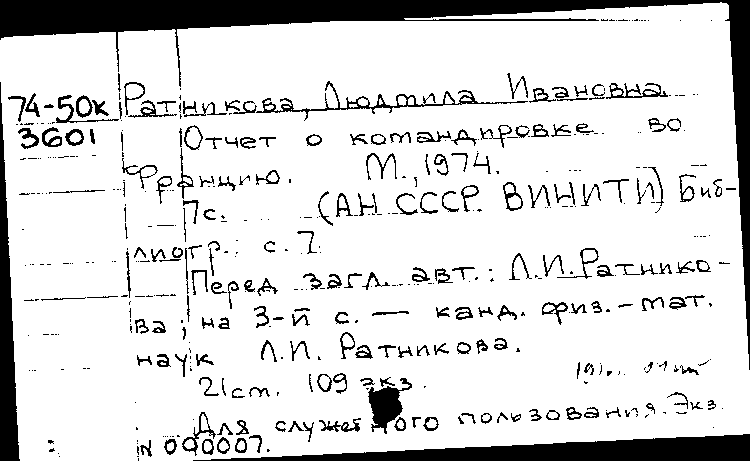 74-50к Ратникова, Людмила Ивановна.
3601 Отчет о командировке во
Францию. М., 1974.
7с. (АН СССР. ВИНИТИ) Биб-
лиогр.: с. 7
Перед загл. авт.: Л.И. Ратнико-
ва; на 3-й с. — канд. физ.-мат.
наук Л.И. Ратникова.
21см. 109 экз.
Для служебного пользования. Экз.
N 000007.